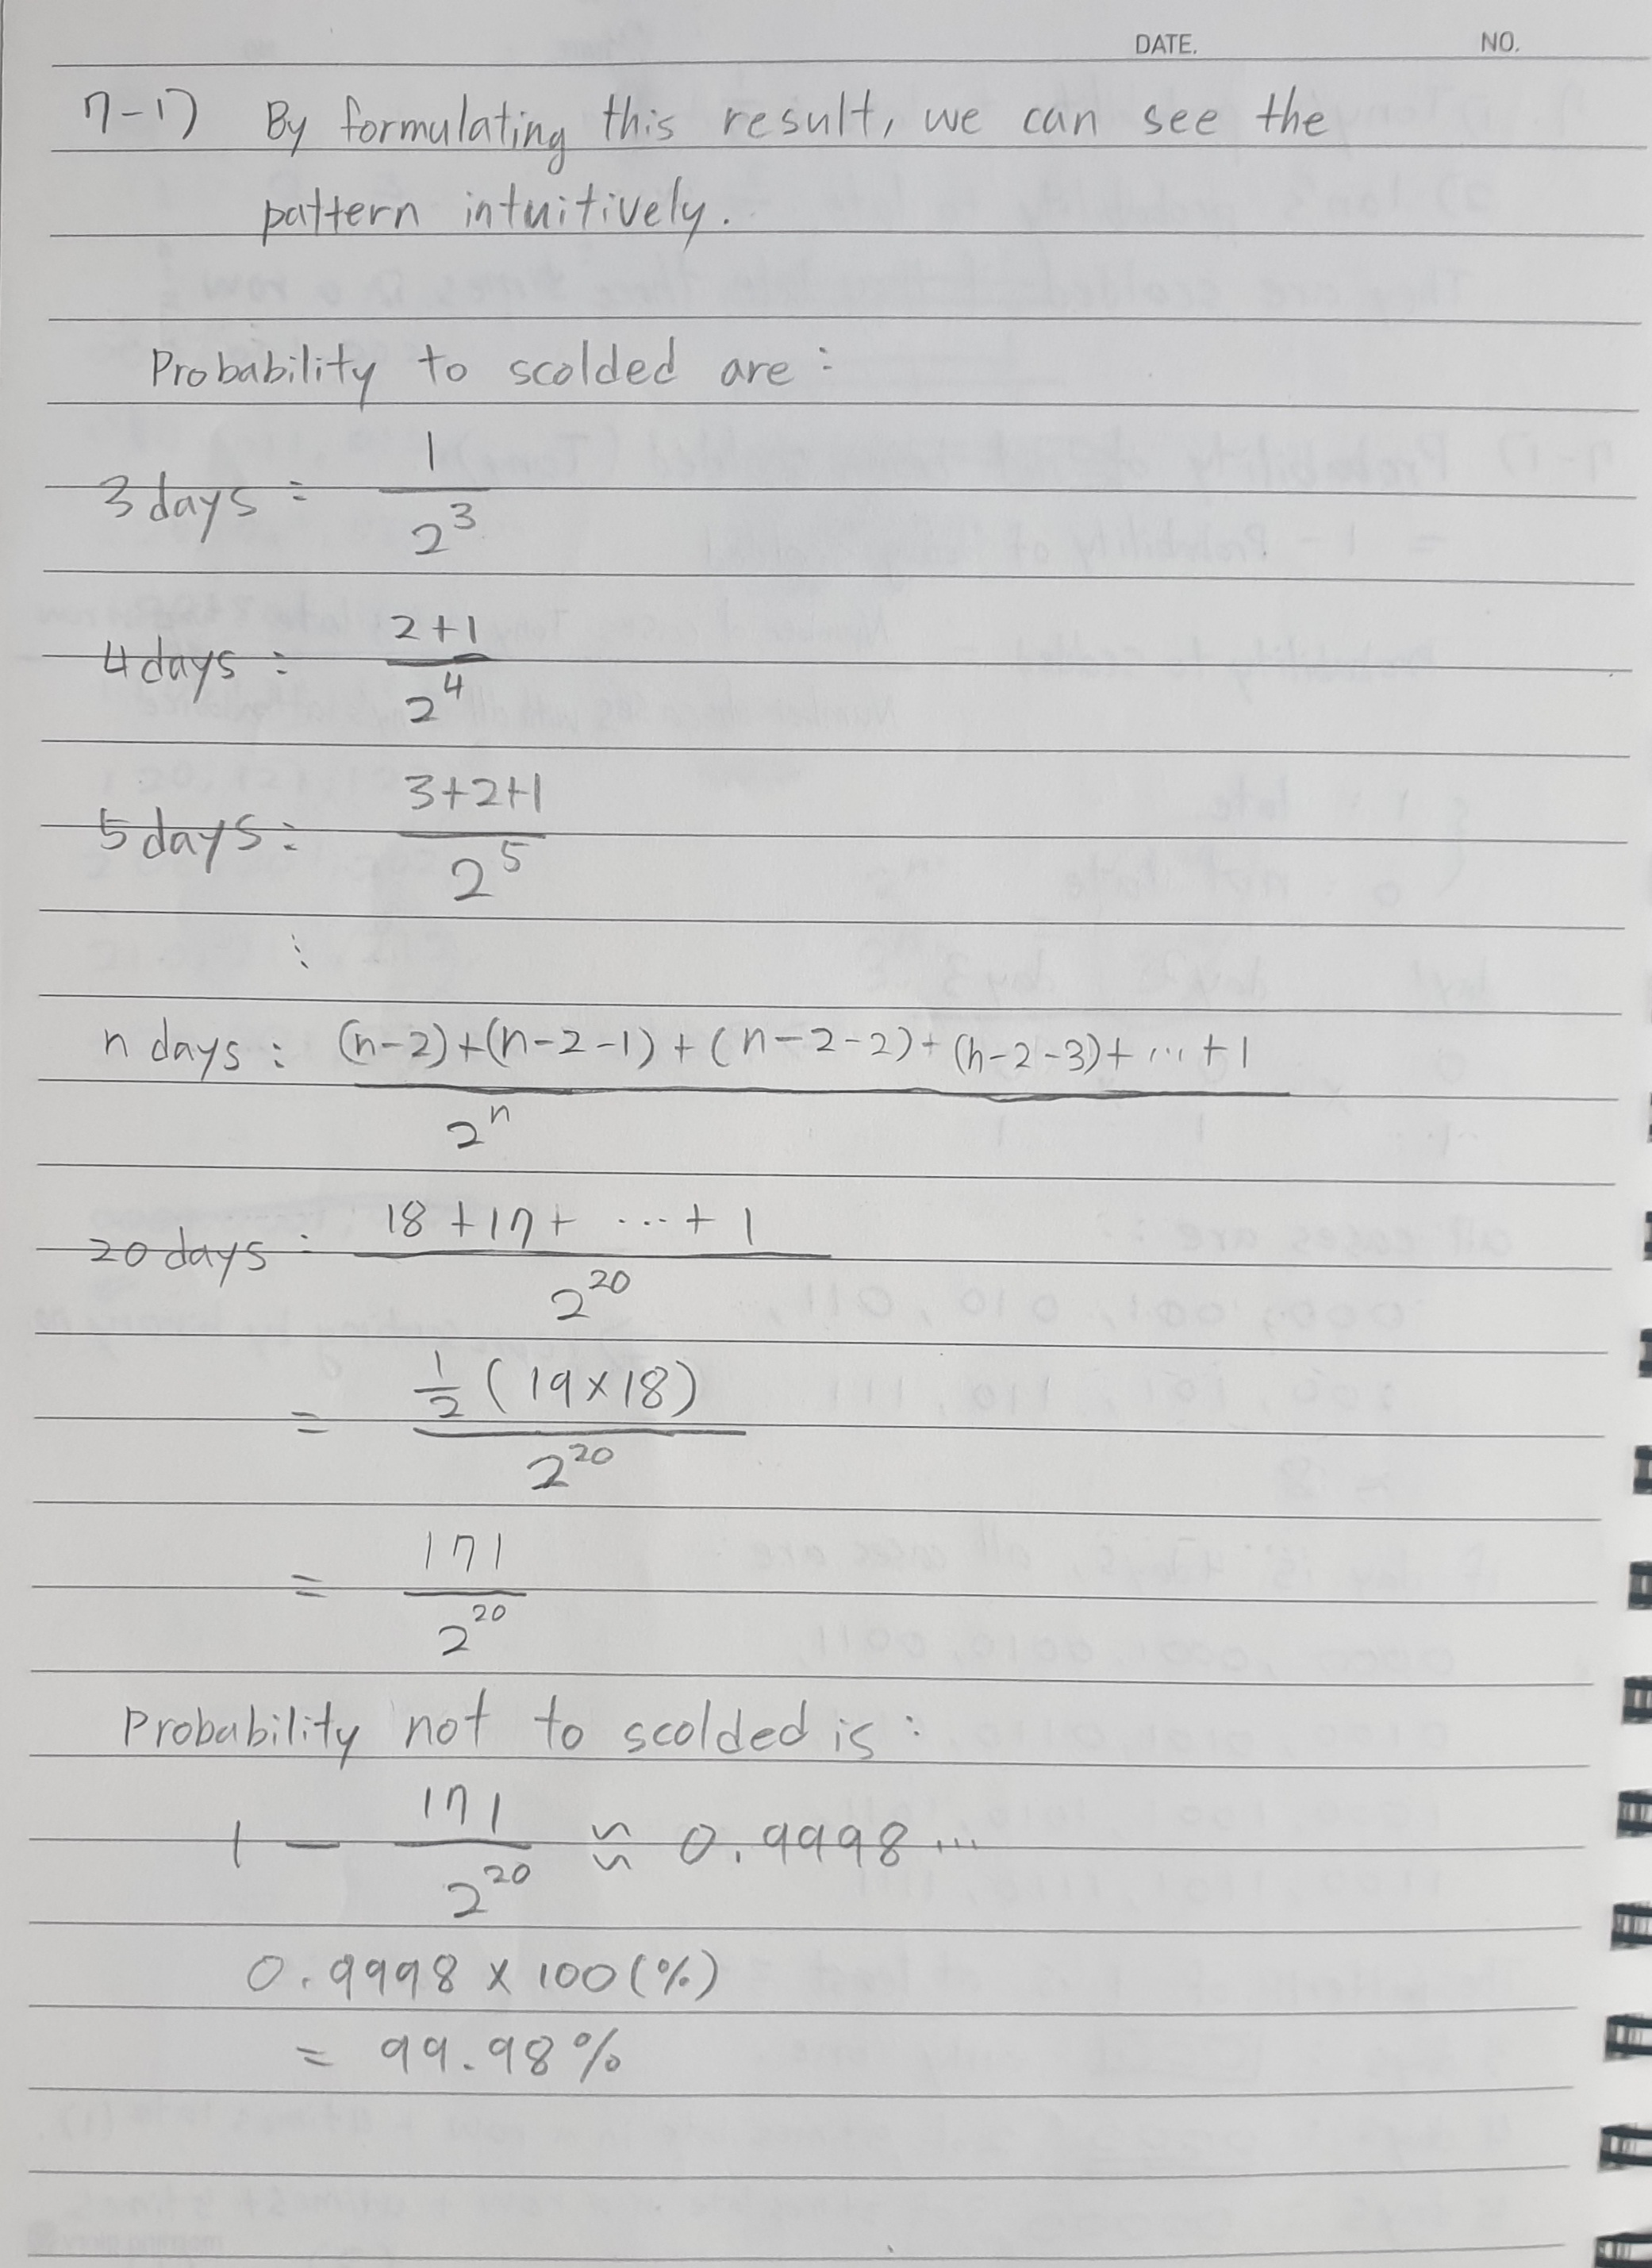 DATE. NO.
7-1) By formulating this result, we can see the
pattern intuitively.
Probability to scolded are :
3 days : 1/2^3
4 days : (2+1)/2^4
5 days : (3+2+1)/2^5
⋮
n days : ((n-2)+(n-2-1)+(n-2-2)+(n-2-3)+ ... +1)/2^n
20 days : (18+17+ ... +1)/2^20
= (1/2 (19×18))/2^20
= 171/2^20
Probability not to scolded is :
1 - 171/2^20 ≈ 0.9998...
0.9998 × 100 (%)
= 99.98%